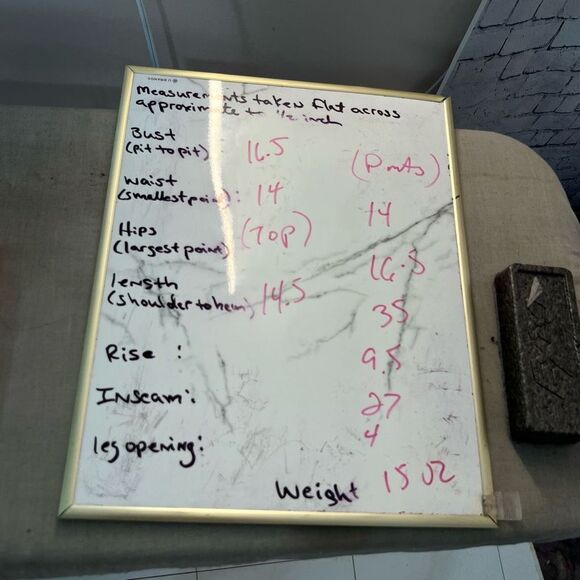 Measurements taken flat across
approximate to 1/2 inch
Bust
(pit to pit) 16.5 (Pants)
Waist
(smallest point): 14 14
Hips (Top)
(largest point) 16.5
length
(shoulder to hem) 14.5 35
Rise : 9.5
Inseam: 27
leg opening: 4
Weight 15 oz